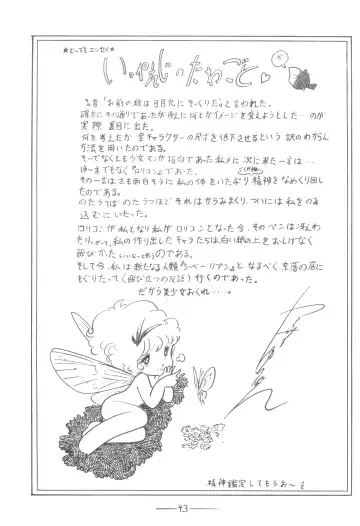 ★どーでも エッセイ★
いっかんじのたわごと♡
昔「お前の絵は弓月光にそっくりだ」と言われた。
確かにその通りであったが ゆえに何とかイメージを変えようとした…のが
実際 裏目に出た。
何を考えたか 全キャラクターの尺寸を低下させるという 訳のわからん
方法を用いたのである。
そーでなくとも少女マンガ指向であった私メに 次に来た一言は…
ゆーまでもなく『ロリコン』であった。
その一言はさも面白そうに私の体をいたぶり精神をなめくり回し
たのである。
のたうてば のたうつほど それはからみまくり、ついには私をのみ
込むにいたった。
ロリコンが私となり私がロリコンとなった今、そのペンは冴えわ
たり、私の作り出したキャラたちは白い紙のとき おしげなく
飛びかった のである。
そして今、私は新たなる人類 となるべく 奈落の底に
もぐりたって(飛び立つの反語) 行くのであった。
だから美少女おくれ……。
精神鑑定してもらお〜
43